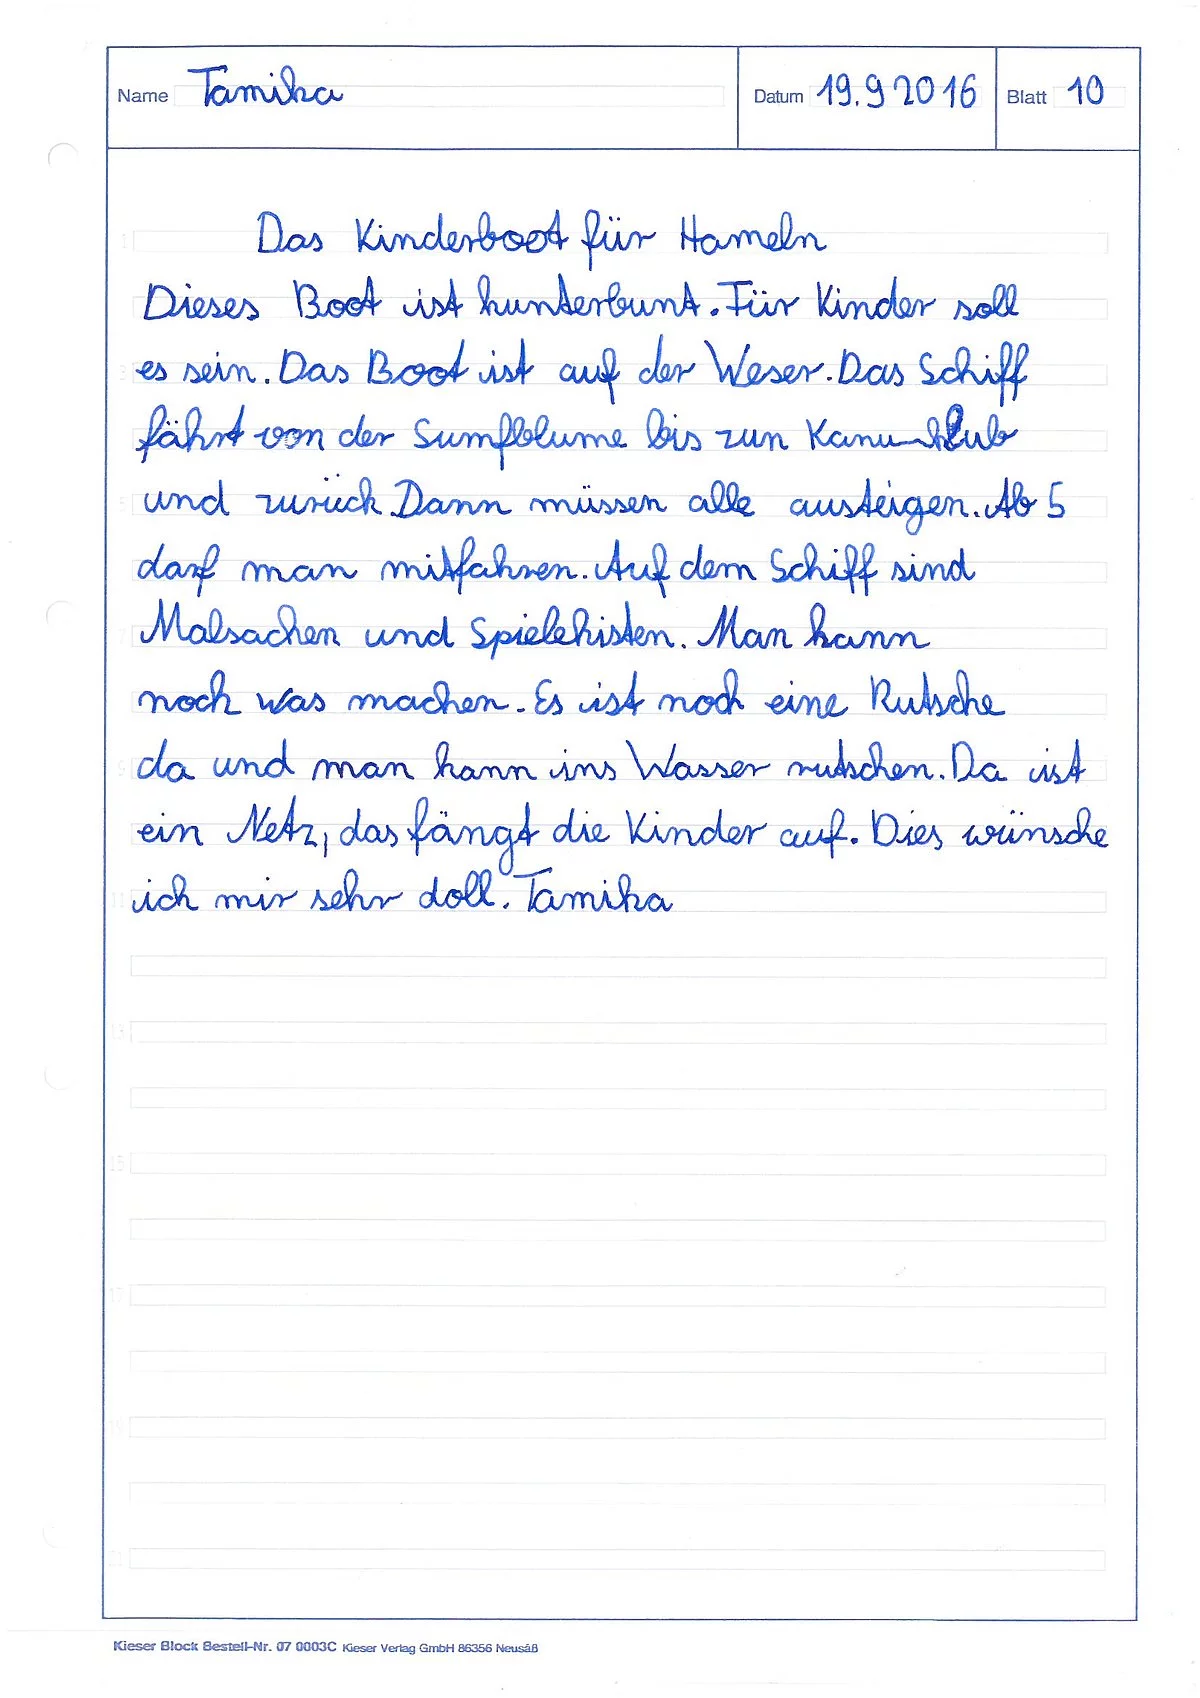 Name Tamika Datum 19.9 2016 Blatt 10
1 Das Kinderboot für Hameln
Dieses Boot ist kunterbunt. Für Kinder soll
3 es sein. Das Boot ist auf der Weser. Das Schiff
fährt von der Sumpfblume bis zun Kanu-Klub
5 und zurück Dann müssen alle austeigen. Ab 5
darf man mitfahren. Auf dem Schiff sind
7 Malsachen und Spielekisten. Man kann
noch was machen. Es ist noch eine Rutsche
9 da und man kann ins Wasser rutschen. Da ist
ein Netz, das fängt die Kinder auf. Dies wünsche
11 ich mir sehr doll. Tamika
13
15
17
19
21
Kieser Block Bestell-Nr. 07 0003C Kieser Verlag GmbH 86356 Neusäß